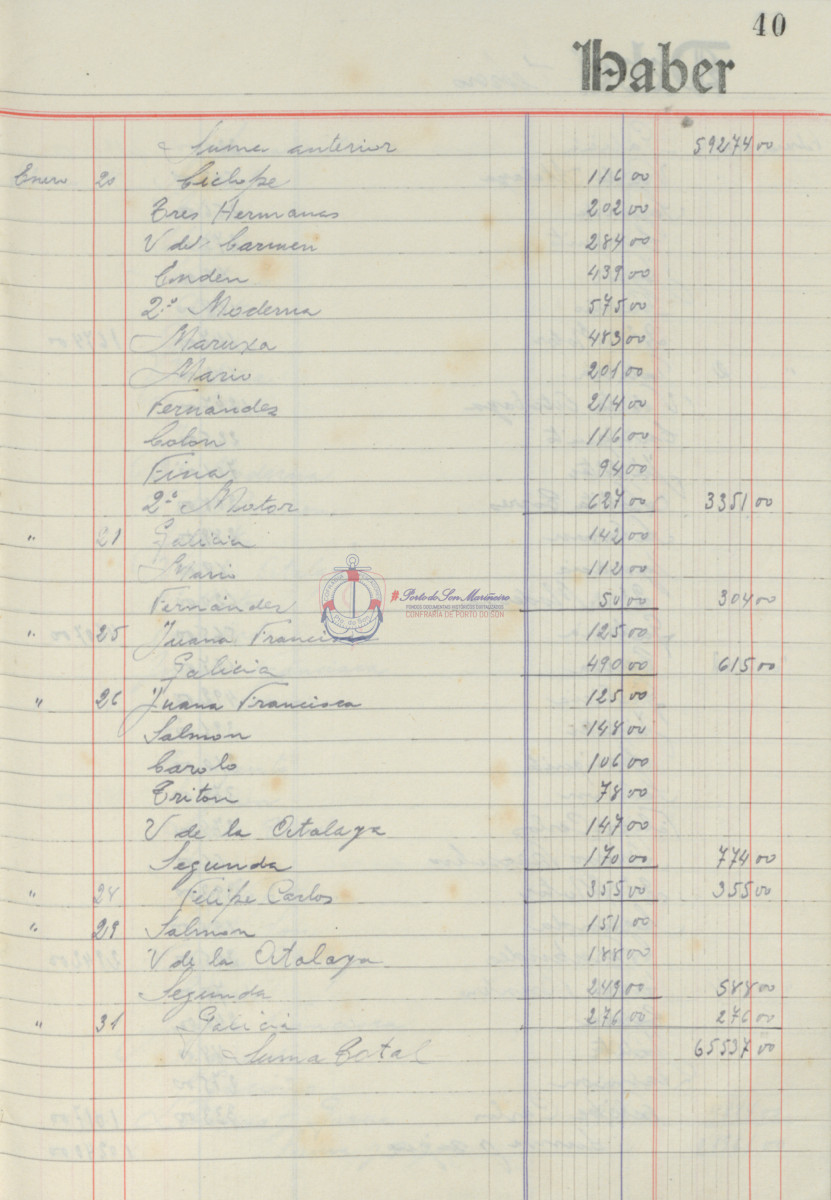 40
Haber
Suma anterior 59274 00
Enero 20 Ciclope 116 00
Tres Hermanas 202 00
V del Carmen 284 00
Emden 439 00
2ª Moderna 575 00
Maruxa 483 00
Mario 201 00
Fernández 214 00
Colon 116 00
Fina 94 00
2ª Motor 627 00 3351 00
" 21 Galicia 142 00
Mario 112 00
Fernández 50 00 304 00
" 25 Juana Francisca 125 00
Galicia 490 00 615 00
" 26 Juana Francisca 125 00
Salmon 148 00
Carolo 106 00
Triton 78 00
V de la Atalaya 147 00
Segunda 170 00 774 00
" 24 Felipe Carlos 355 00 355 00
" 29 Salmon 151 00
V de la Atalaya 188 00
Segunda 249 00 588 00
" 31 Galicia 276 00 276 00
Suma Total 65537 00
#Porto do Son Mariñeiro
FONDOS DOCUMENTAIS HISTÓRICOS DIXITALIZADOS
CONFRARÍA DE PORTO DO SON